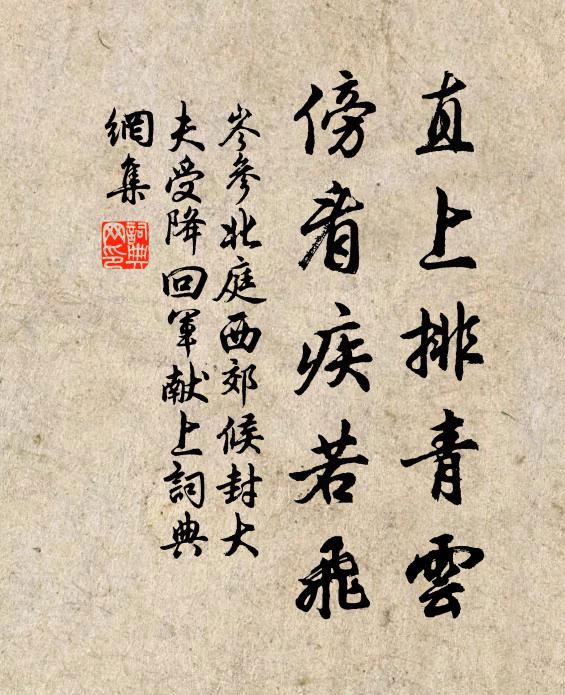 直上排青雲
傍看疾若飛
岑參北庭西郊候封大
夫受降回軍献上詞典
網集
詞典
网印